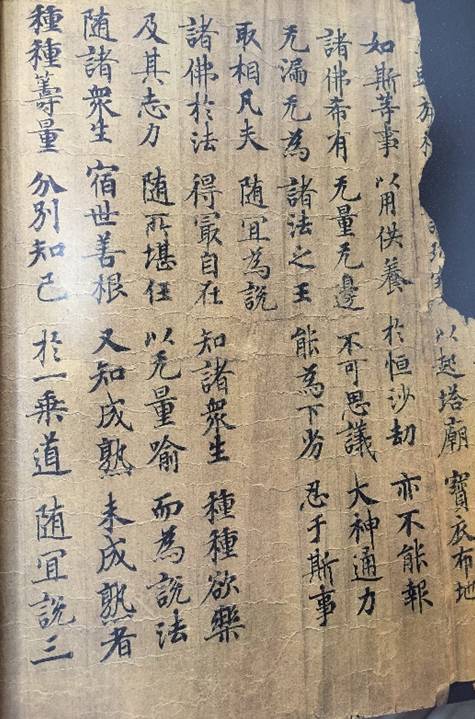 以起塔廟 寶衣布地
如斯等事 以用供養 於恒沙劫 亦不能報
諸佛希有 无量无邊 不可思議 大神通力
无漏无為 諸法之王 能為下劣 忍于斯事
取相凡夫 随冝為說
諸佛於法 得冣自在 知諸衆生 種種欲樂
及其志力 随所堪任 以无量喻 而為說法
随諸衆生 宿世善根 又知成熟 未成熟者
種種籌量 分別知已 於一乗道 随冝說三